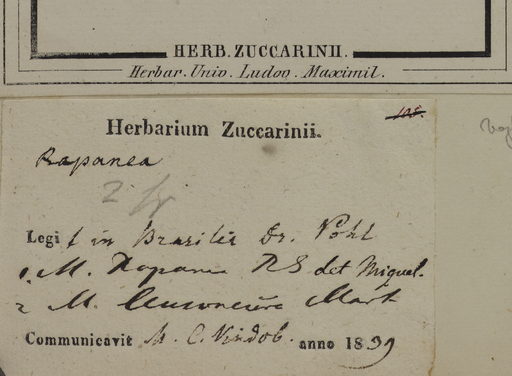 HERB. ZUCCARINII.
Herbar. Univ. Ludov. Maximil.
105.
Herbarium Zuccarinii.
Rapanea
2
Legit in Brasilia Dr. Pohl
1. M. Rapanea RS det Miquel.
2 M. Mart
Communicavit M. C. Vindob. anno 1839